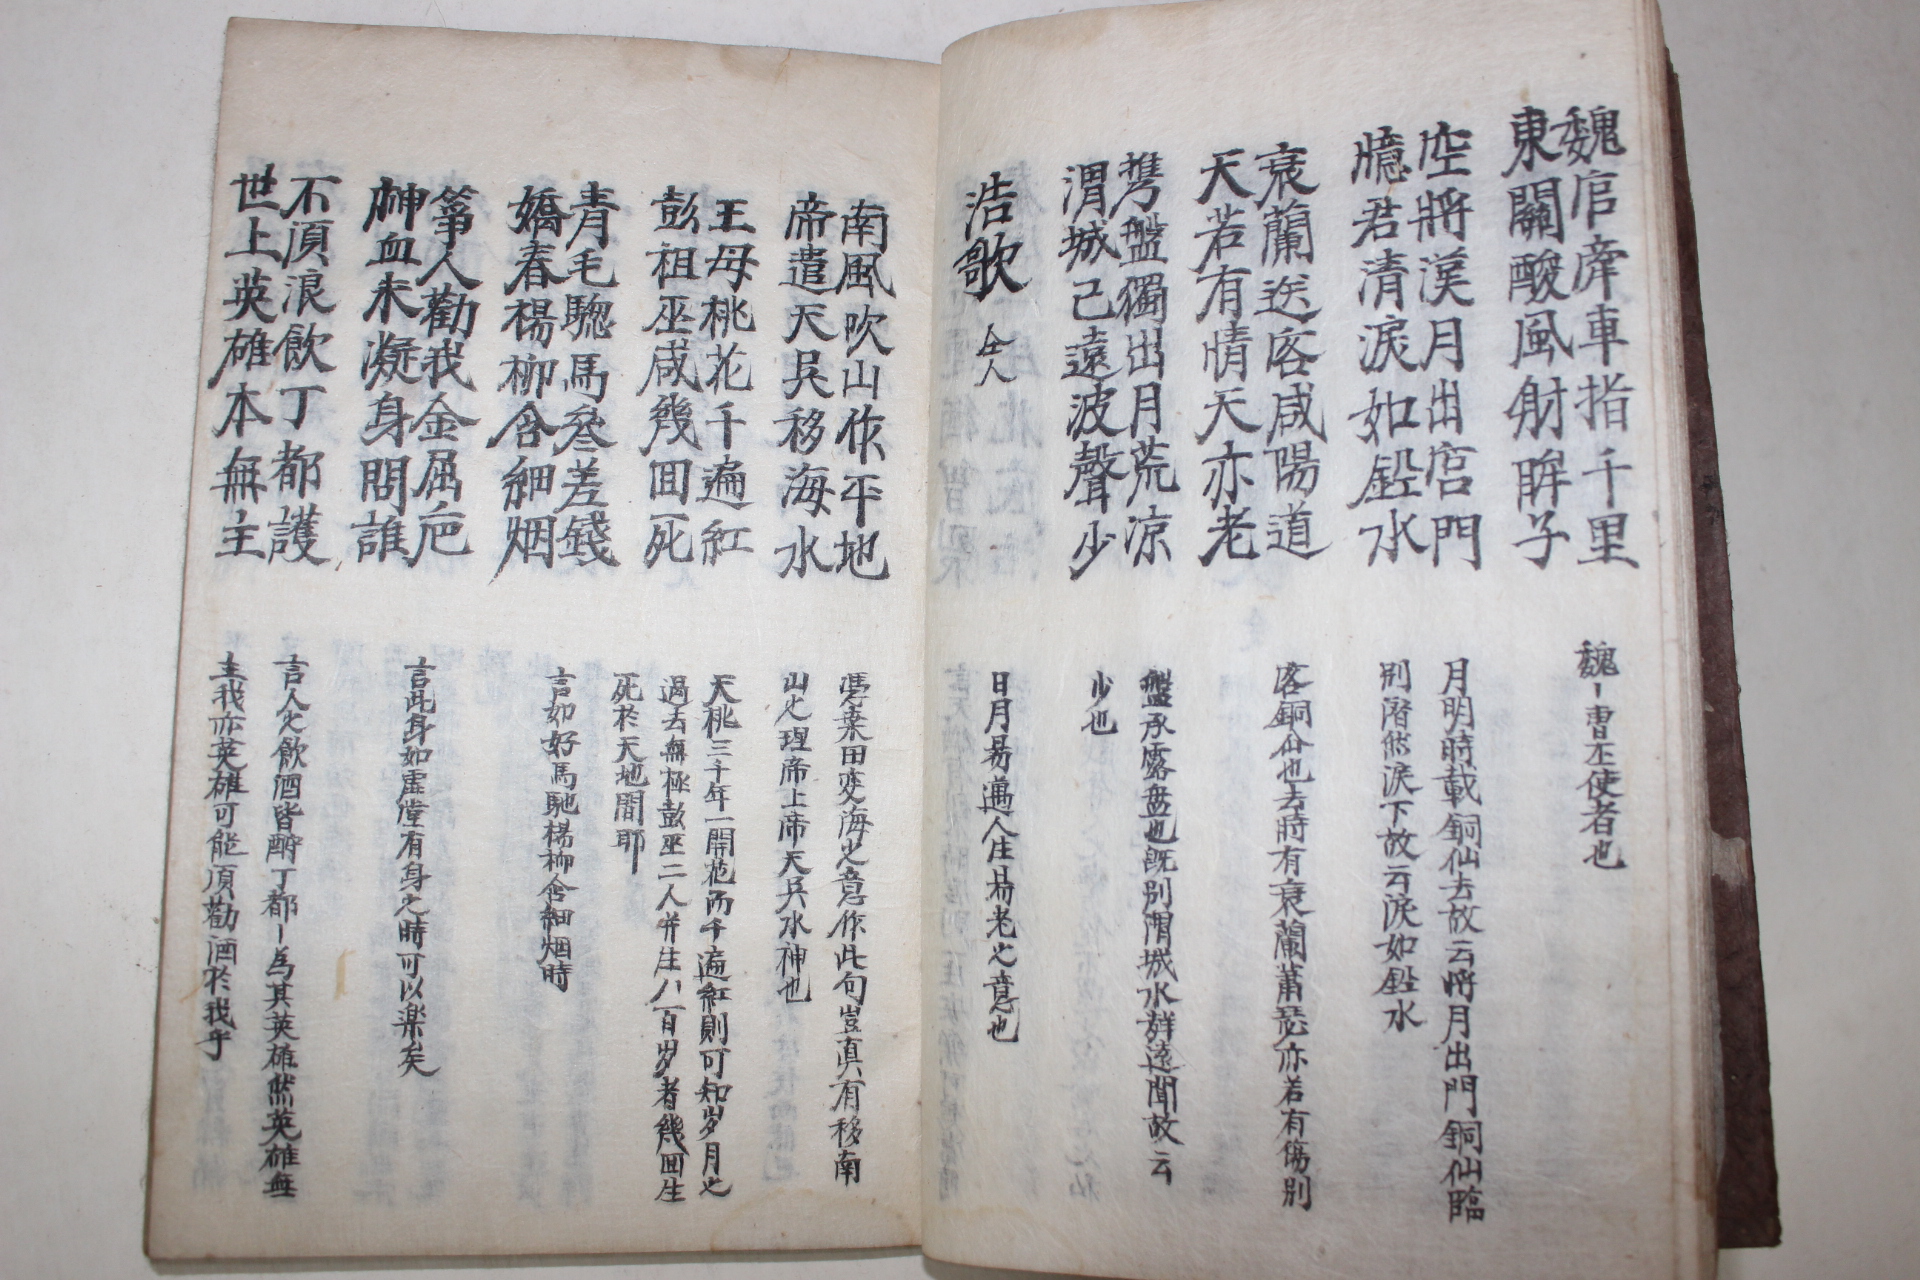 魏官牽車指千里
東關酸風射眸子
魏〻曹丕使者也
空將漢月出宮門
憶君清淚如鉛水
月明時載銅仙去故云將月出門銅仙臨
別潛然淚下故云淚如鉛水
衰蘭送客咸陽道
天若有情天亦老
客銅仚也去時有衰蘭蕭瑟亦若有傷別
携盤獨出月荒凉
渭城已遠波聲少
盤承露盘也旣別渭城水聲遠聞故云
少也
浩歌 仝人
日月易邁人生易老之意也
南風吹山作平地
帝遣天吳移海水
馮桒田变海之意作此句豈真有移南
山之理帝上帝天吳水神也
王母桃花千遍紅
彭祖巫咸幾囬死
天桃三千年一開花而千遍紅則可知岁月之
過去無極彭巫二人幷生八百岁者幾囬生
死於天地間耶
青毛驄馬叅差錢
嬌春楊柳含細烟
言如好馬馳楊柳含細烟時
箏人勸我金屈巵
神血未凝身問誰
言此身如虛堂有身之時可以楽矣
不湏浪飮丁都護
世上英雄本無主
言人之飮酒皆酹丁都〻為其英雄然英雄無
主我亦英雄可能湏勸酒於我乎